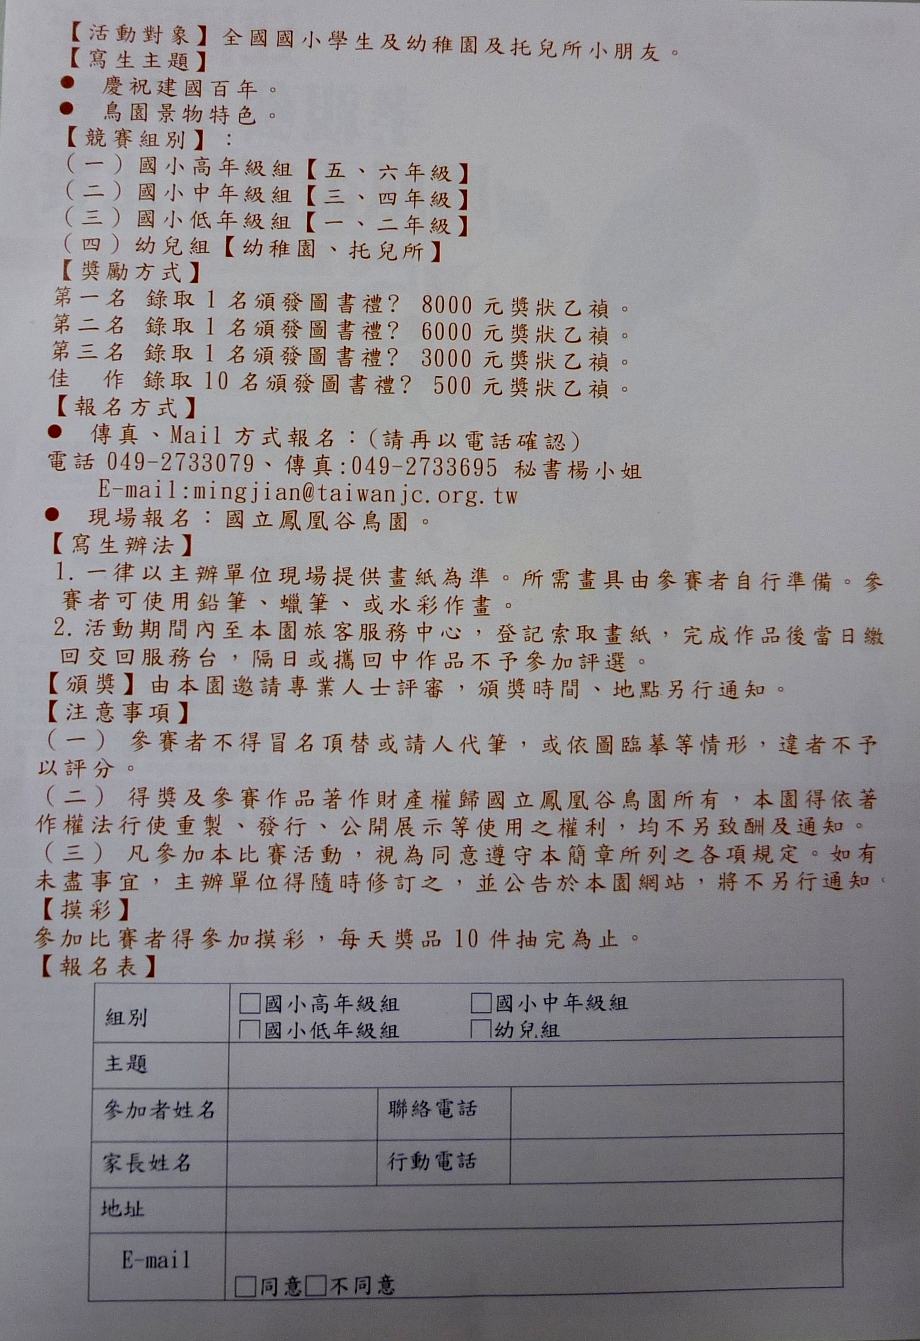 【活動對象】全國國小學生及幼稚園及托兒所小朋友。
【寫生主題】
● 慶祝建國百年。
● 鳥園景物特色。
【競賽組別】：
（一）國小高年級組【五、六年級】
（二）國小中年級組【三、四年級】
（三）國小低年級組【一、二年級】
（四）幼兒組【幼稚園、托兒所】
【獎勵方式】
第一名 錄取 1 名頒發圖書禮? 8000 元獎狀乙禎。
第二名 錄取 1 名頒發圖書禮? 6000 元獎狀乙禎。
第三名 錄取 1 名頒發圖書禮? 3000 元獎狀乙禎。
佳 作 錄取 10 名頒發圖書禮? 500 元獎狀乙禎。
【報名方式】
● 傳真、Mail 方式報名：(請再以電話確認)
電話 049-2733079、傳真:049-2733695 秘書楊小姐
E-mail:mingjian@taiwanjc.org.tw
● 現場報名：國立鳳凰谷鳥園。
【寫生辦法】
1.一律以主辦單位現場提供畫紙為準。所需畫具由參賽者自行準備。參
賽者可使用鉛筆、蠟筆、或水彩作畫。
2.活動期間內至本園旅客服務中心，登記索取畫紙，完成作品後當日繳
回交回服務台，隔日或攜回中作品不予參加評選。
【頒獎】由本園邀請專業人士評審，頒獎時間、地點另行通知。
【注意事項】
（一） 參賽者不得冒名頂替或請人代筆，或依圖臨摹等情形，違者不予
以評分。
（二） 得獎及參賽作品著作財產權歸國立鳳凰谷鳥園所有，本園得依著
作權法行使重製、發行、公開展示等使用之權利，均不另致酬及通知。
（三） 凡參加本比賽活動，視為同意遵守本簡章所列之各項規定。如有
未盡事宜，主辦單位得隨時修訂之，並公告於本園網站，將不另行通知。
【摸彩】
參加比賽者得參加摸彩，每天獎品 10 件抽完為止。
【報名表】
組別 □國小高年級組 □國小中年級組
□國小低年級組 □幼兒組
主題
參加者姓名 聯絡電話
家長姓名 行動電話
地址
E-mail
□同意□不同意